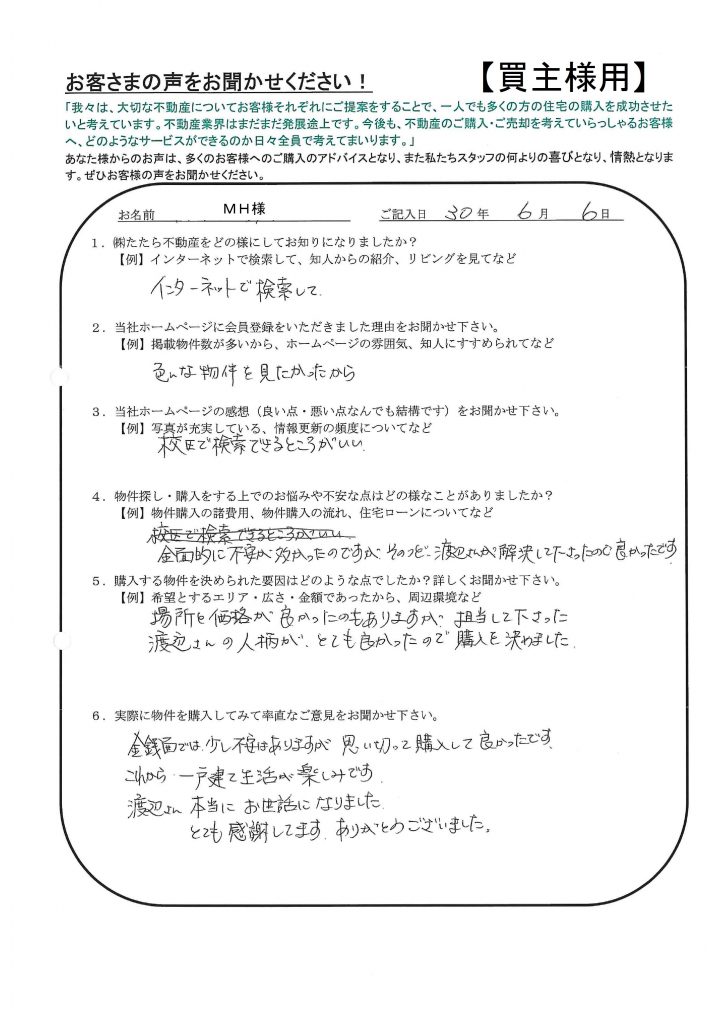 お客さまの声をお聞かせください！
【買主様用】
「我々は、大切な不動産についてお客様それぞれにご提案をすることで、一人でも多くの方の住宅の購入を成功させた
いと考えています。不動産業界はまだまだ発展途上です。今後も、不動産のご購入・ご売却を考えていらっしゃるお客様
へ、どのようなサービスができるのか日々全員で考えてまいります。」
あなた様からのお声は、多くのお客様へのご購入のアドバイスとなり、また私たちスタッフの何よりの喜びとなり、情熱となりま
す。ぜひお客様の声をお聞かせください。
お名前 MH様 ご記入日 30年 6月 6日
1．㈱たたら不動産をどの様にしてお知りになりましたか？
【例】インターネットで検索して、知人からの紹介、リビングを見てなど
インターネットで検索して.
2．当社ホームページに会員登録をいただきました理由をお聞かせ下さい。
【例】掲載物件数が多いから、ホームページの雰囲気、知人にすすめられてなど
色んな物件を見たかったから
3．当社ホームページの感想（良い点・悪い点なんでも結構です）をお聞かせ下さい。
【例】写真が充実している、情報更新の頻度についてなど
校区で検索できるところがいい.
4．物件探し・購入をする上でのお悩みや不安な点はどの様なことがありましたか？
【例】物件購入の諸費用、物件購入の流れ、住宅ローンについてなど
校区で検索できるところがいい
全面的に不安が多かったのですが そのつど 渡辺さんが解決して下さったので良かったです
5．購入する物件を決められた要因はどのような点でしたか？詳しくお聞かせ下さい。
【例】希望とするエリア・広さ・金額であったから、周辺環境など
場所と価格が良かったのもありますが、担当して下さった
渡辺さんの人柄が、とても良かったので購入を決めました.
6．実際に物件を購入してみて率直なご意見をお聞かせ下さい。
金銭面では少し不安はありますが 思い切って購入して良かったです.
これから 一戸建て生活が楽しみです.
渡辺さん 本当に お世話になりました.
とても 感謝してます. ありがとうございました。